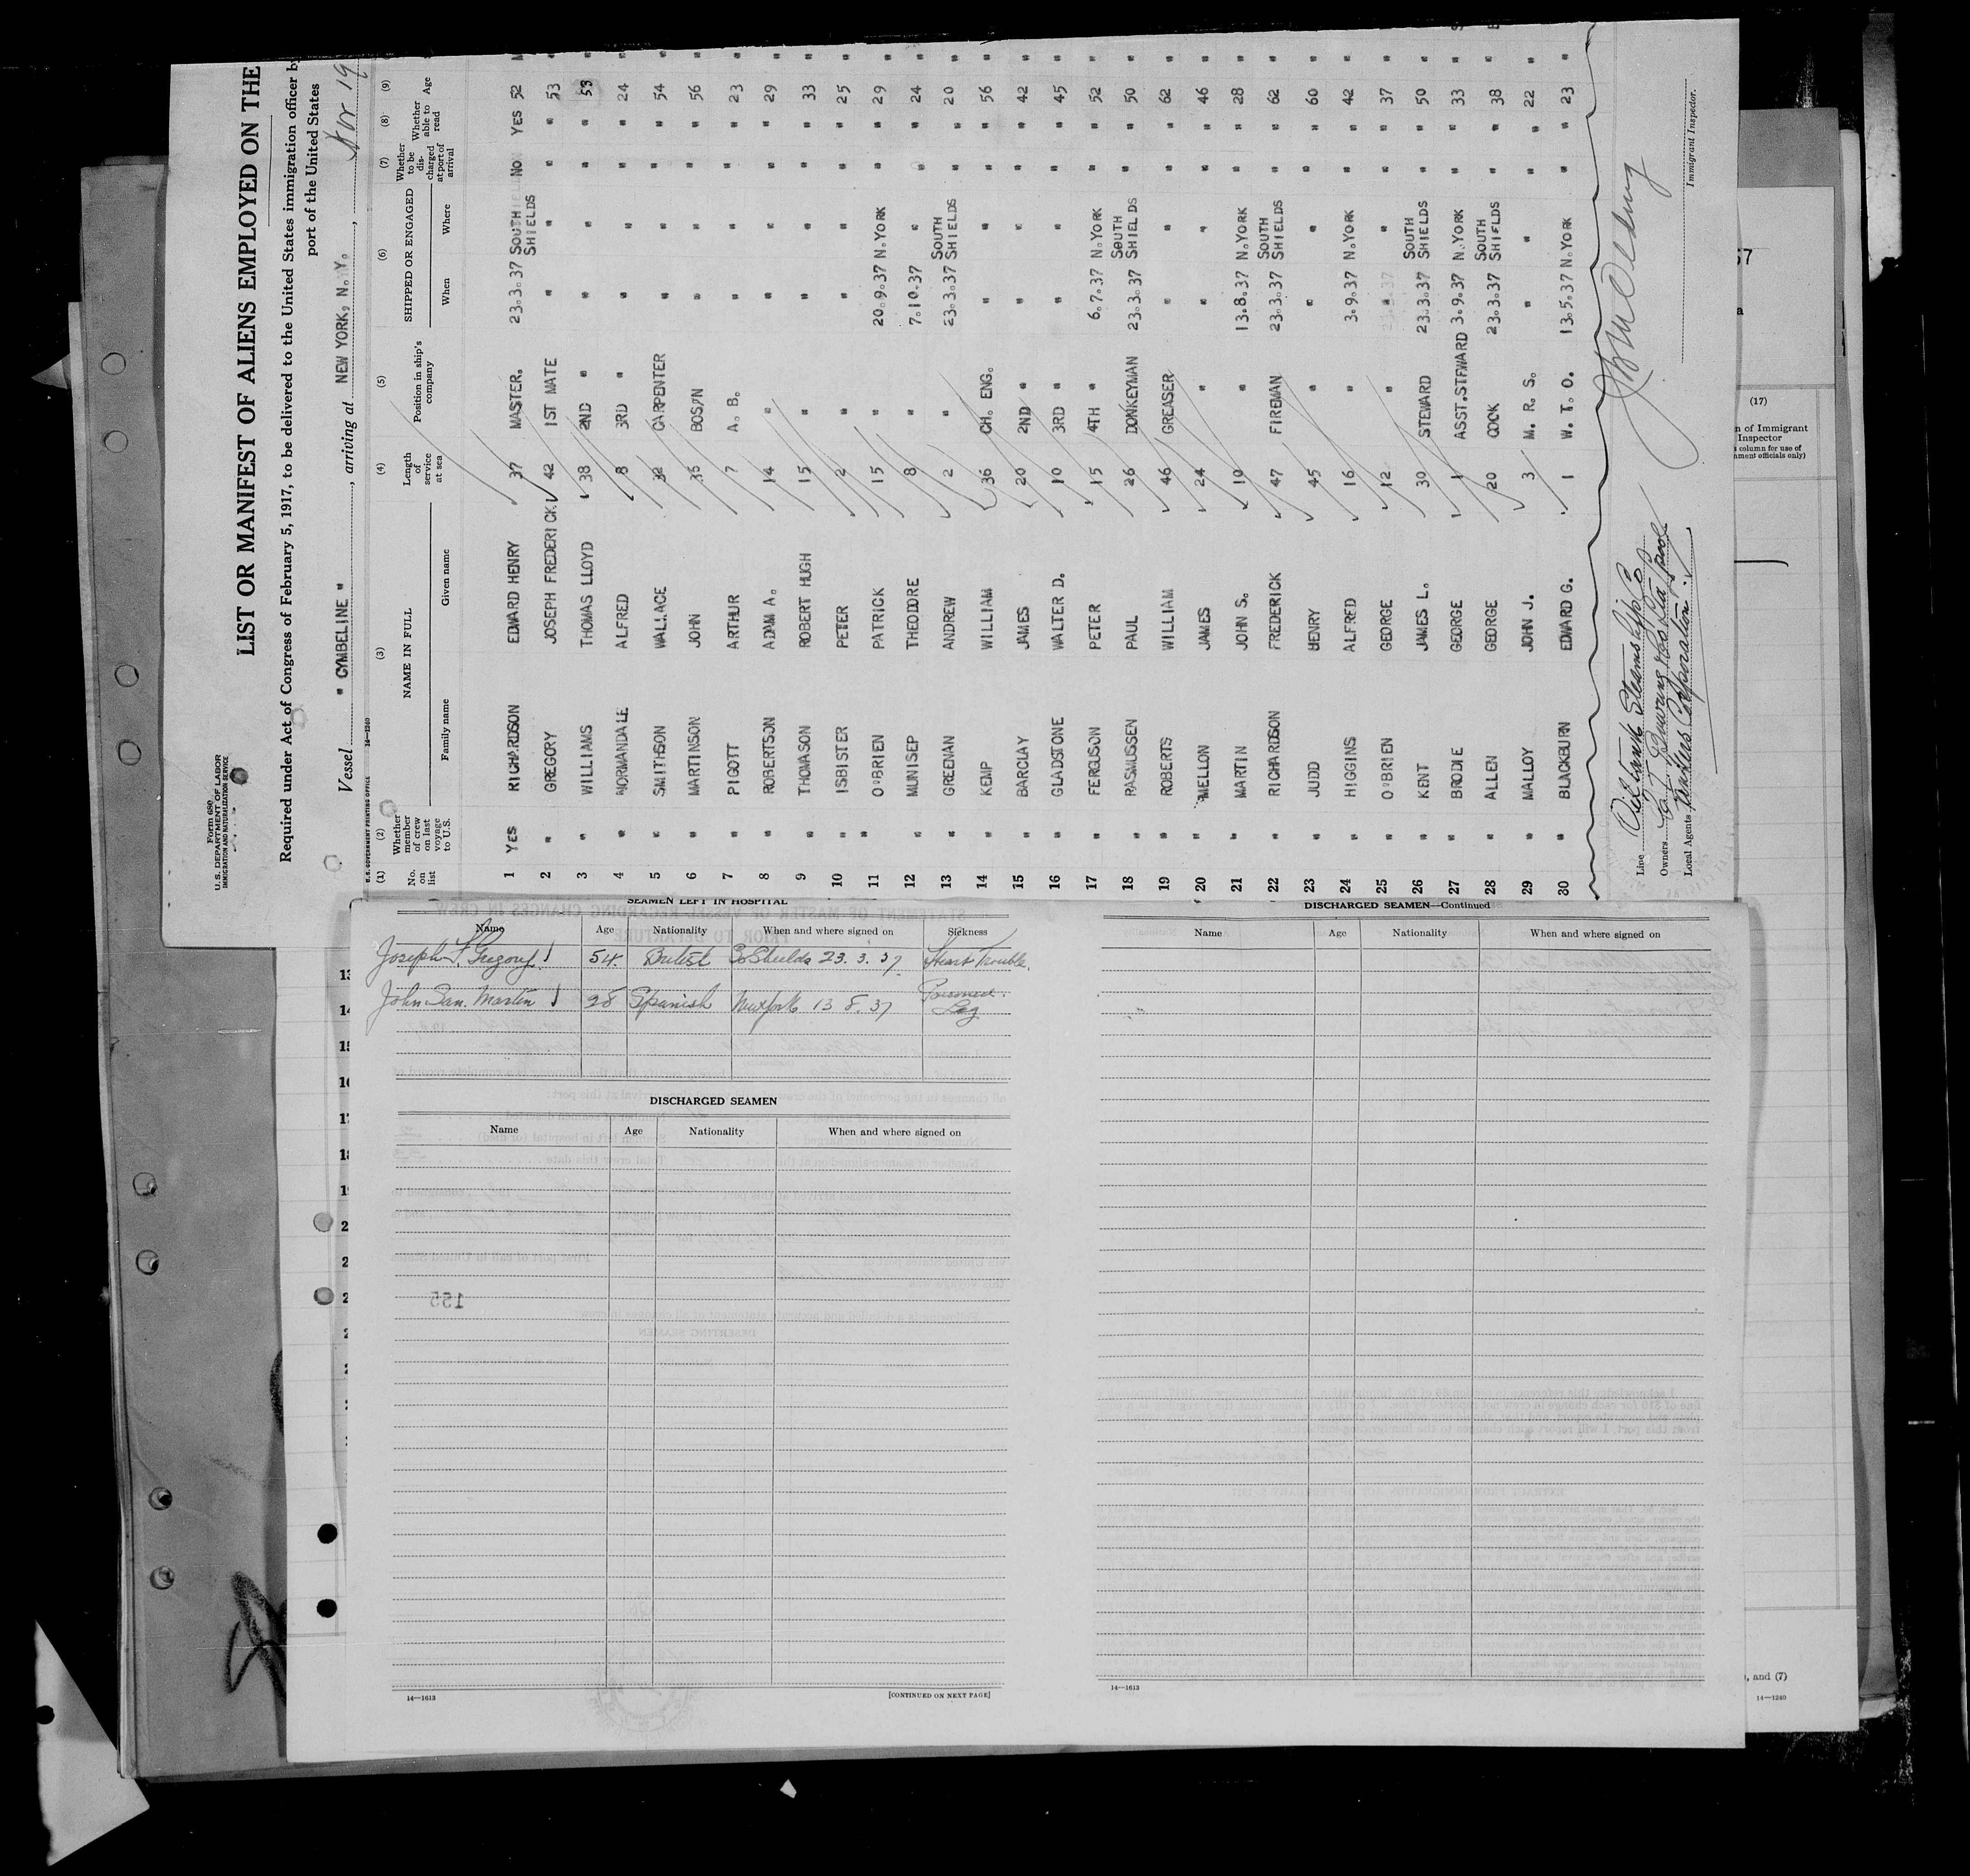 Form 680
U. S. DEPARTMENT OF LABOR
IMMIGRATION AND NATURALIZATION SERVICE
LIST OR MANIFEST OF ALIENS EMPLOYED ON THE
Required under Act of Congress of February 5, 1917, to be delivered to the United States immigration officer by
port of the United States
Vessel " CYMBELINE ", arriving at NEW YORK, N.Y., Nov 19
U.S. GOVERNMENT PRINTING OFFICE 14—1240
(1) (2) (3) (4) (5) (6) (7) (8) (9)
No. on list Whether member of crew on last voyage to U.S. NAME IN FULL Family name Given name Length of service at sea Position in ship's company SHIPPED OR ENGAGED When Where Whether to be discharged at port of arrival Whether able to read Age
1 YES RICHARDSON EDWARD HENRY 37 MASTER. 23.3.37 SOUTH SHIELDS NO YES 52
2 " GREGORY JOSEPH FREDERICK. 42 1ST MATE " " " " 53
3 " WILLIAMS THOMAS LLOYD 38 2ND " " " " " 53
4 " NORMANDALE ALFRED 8 3RD " " " " " 24
5 " SMITHSON WALLACE 32 CARPENTER " " " " 54
6 " MARTINSON JOHN 35 BOS'N " " " " 56
7 " PIGOTT ARTHUR 7 A. B. " " " " 23
8 " ROBERTSON ADAM A. 14 " " " " " 29
9 " THOMASON ROBERT HUGH 15 " " " " " 33
10 " ISBISTER PETER 2 " " " " " 25
11 " O'BRIEN PATRICK 15 " 20.9.37 N.YORK " " 29
12 " MUNISEP THEODORE 8 " 7.10.37 " " " 24
13 " GREENAN ANDREW 2 " 23.3.37 SOUTH SHIELDS " " 20
14 " KEMP WILLIAM 36 CH. ENG. " " " " 56
15 " BARCLAY JAMES 20 2ND " " " " " 42
16 " GLADSTONE WALTER D. 10 3RD " " " " " 45
17 " FERGUSON PETER 15 4TH " 6.7.37 N.YORK " " 52
18 " RASMUSSEN PAUL 26 DONKEYMAN 23.3.37 SOUTH SHIELDS " " 50
19 " ROBERTS WILLIAM 46 GREASER " " " " 62
20 " MELLON JAMES 24 " " " " " 46
21 " MARTIN JOHN S. 10 " 13.8.37 N.YORK " " 28
22 " RICHARDSON FREDERICK 47 FIREMAN 23.3.37 SOUTH SHIELDS " " 62
23 " JUDD HENRY 45 " " " " " 60
24 " HIGGINS ALFRED 16 " 3.9.37 N.YORK " " 42
25 " O'BRIEN GEORGE 12 " " " " " 37
26 " KENT JAMES L. 30 STEWARD 23.3.37 SOUTH SHIELDS " " 50
27 " BRODIE GEORGE 1 ASST.STEWARD 3.9.37 N.YORK " " 33
28 " ALLEN GEORGE 20 COOK 23.3.37 SOUTH SHIELDS " " 38
29 " MALLOY JOHN J. 3 M. R. S. " " " " 22
30 " BLACKBURN EDWARD G. 1 W. T. O. 13.5.37 N.YORK " " 23
Line Oiltank Steamship Co
Owners
Local Agents Corporation
Immigrant Inspector.
(17)
n of Immigrant
Inspector
column for use of
ment officials only)
, and (7)
14—1240
SEAMEN LEFT IN HOSPITAL
Name Age Nationality When and where signed on Sickness
Joseph F. Gregory 54. British So Shields 23. 3. 37. Heart Trouble.
John San. Martin 28 Spanish New York 13 8. 37 Poisoned Leg
DISCHARGED SEAMEN
Name Age Nationality When and where signed on
14—1613
[CONTINUED ON NEXT PAGE]
DISCHARGED SEAMEN—Continued
Name Age Nationality When and where signed on
14—1613